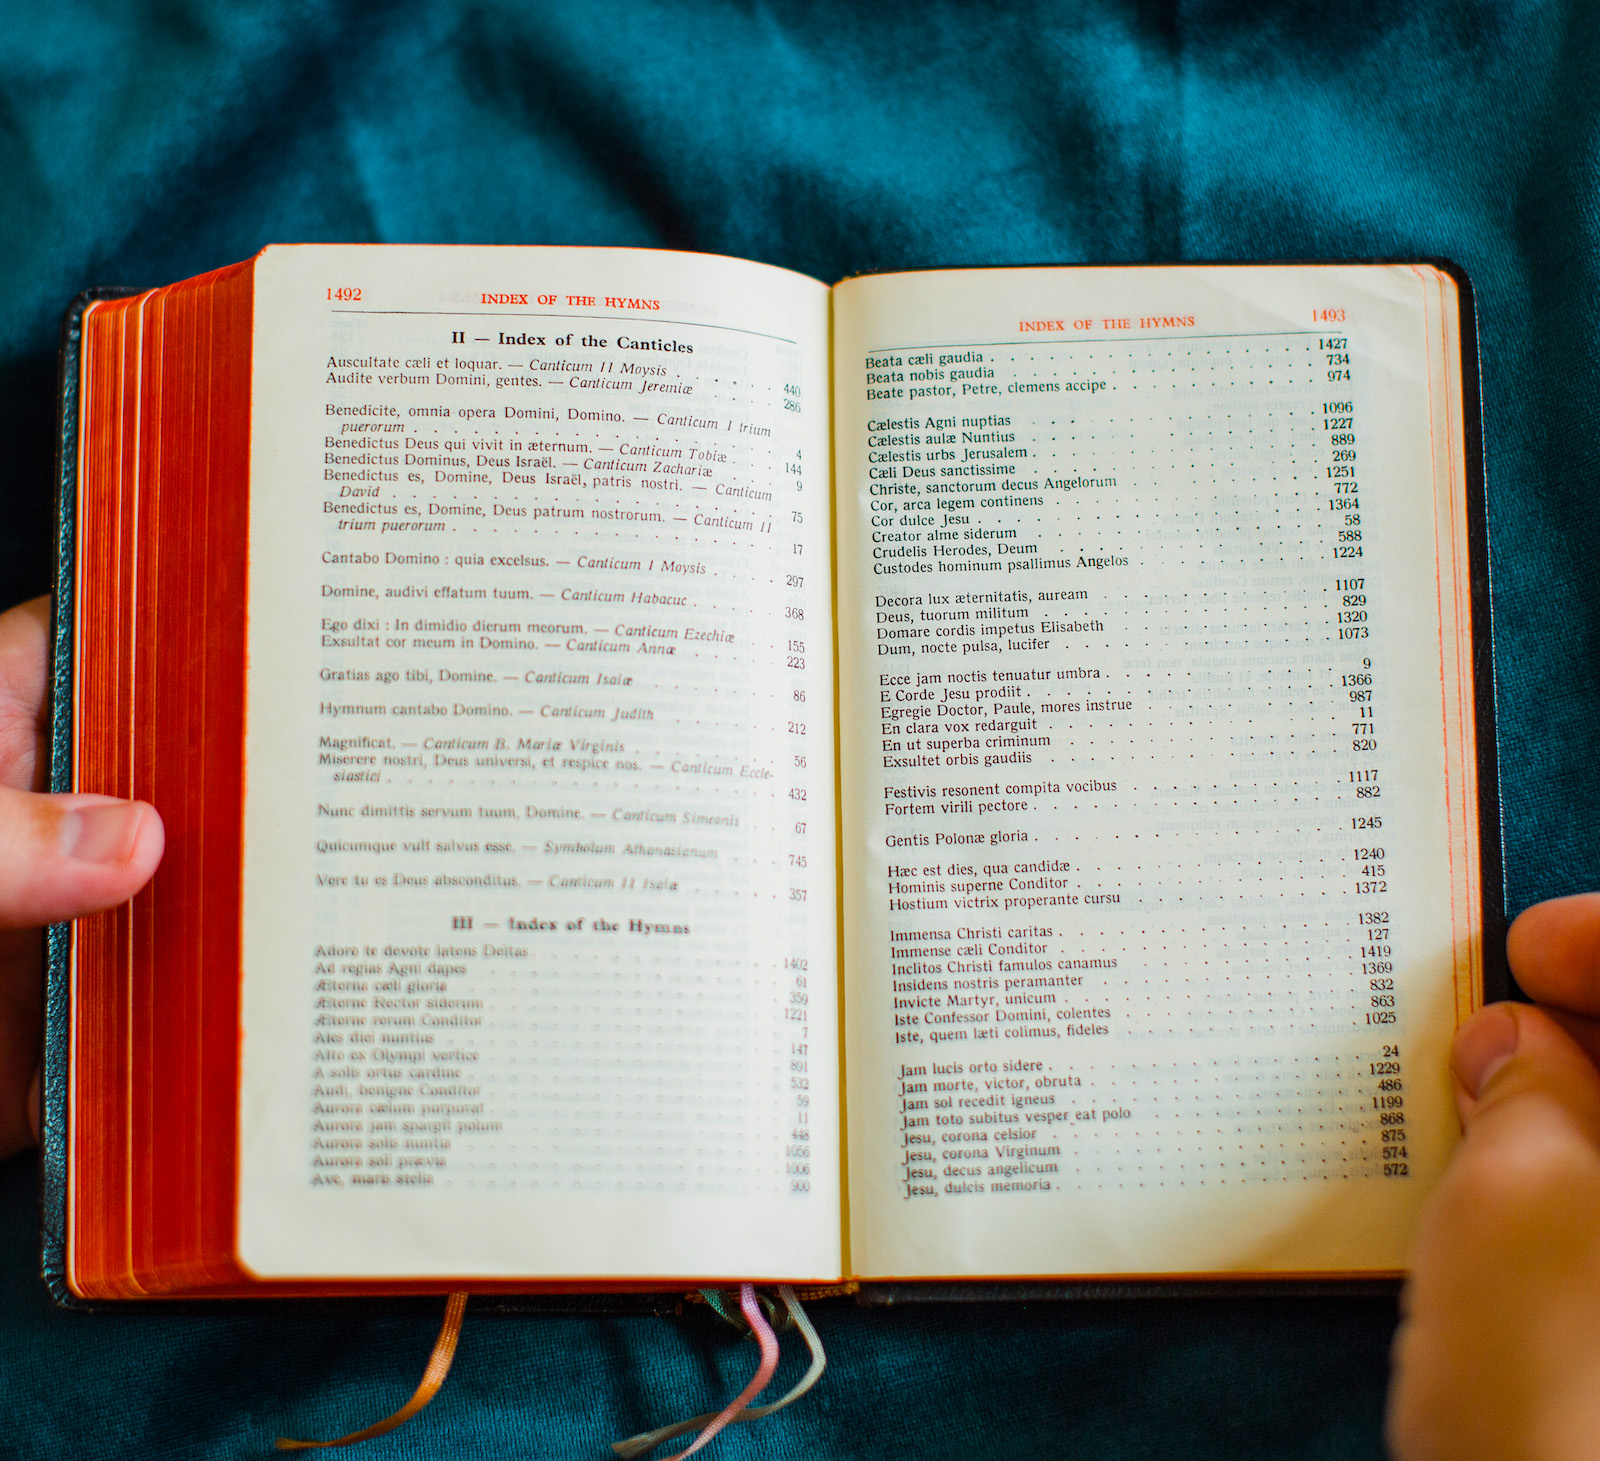 1492 INDEX OF THE HYMNS
II — Index of the Canticles
Auscultate cæli et loquar. — Canticum II Moysis . . . . . 440
Audite verbum Domini, gentes. — Canticum Jeremiæ . . . . 286
Benedicite, omnia opera Domini, Domino. — Canticum I trium
puerorum . . . . . . . . . . . . . . 4
Benedictus Deus qui vivit in æternum. — Canticum Tobiæ . . . 144
Benedictus Dominus, Deus Israël. — Canticum Zachariæ . . . 9
Benedictus es, Domine, Deus Israël, patris nostri. — Canticum
David . . . . . . . . . . . . . . . 75
Benedictus es, Domine, Deus patrum nostrorum. — Canticum II
trium puerorum . . . . . . . . . . . . 17
Cantabo Domino : quia excelsus. — Canticum I Moysis . . . . 297
Domine, audivi effatum tuum. — Canticum Habacuc . . . . . 368
Ego dixi : In dimidio dierum meorum. — Canticum Ezechiæ . . 155
Exsultat cor meum in Domino. — Canticum Annæ . . . . . 223
Gratias ago tibi, Domine. — Canticum Isaiæ . . . . . . 86
Hymnum cantabo Domino. — Canticum Judith . . . . . . 212
Magnificat. — Canticum B. Mariæ Virginis . . . . . . . 56
Miserere nostri, Deus universi, et respice nos. — Canticum Eccle-
siastici . . . . . . . . . . . . . . 432
Nunc dimittis servum tuum, Domine. — Canticum Simeonis . . 67
Quicumque vult salvus esse. — Symbolum Athanasianum . . . 745
Vere tu es Deus absconditus. — Canticum II Isaiæ . . . . . 357
III — Index of the Hymns
Adoro te devote latens Deitas . . . . . . . . . . 1402
Ad regias Agni dapes . . . . . . . . . . . . 61
Æterna cæli gloria . . . . . . . . . . . . . 359
Æterne Rector siderum . . . . . . . . . . . . 1221
Æterne rerum Conditor . . . . . . . . . . . . 7
Ales diei nuntius . . . . . . . . . . . . . 147
Alto ex Olympi vertice . . . . . . . . . . . . 891
A solis ortus cardine . . . . . . . . . . . . 532
Audi, benigne Conditor . . . . . . . . . . . . 59
Aurora cælum purpurat . . . . . . . . . . . . 11
Aurora jam spargit polum . . . . . . . . . . . 448
Aurora solis nuntia . . . . . . . . . . . . . 1056
Aurora soli prævia . . . . . . . . . . . . . 1006
Ave, maris stella . . . . . . . . . . . . . 900
INDEX OF THE HYMNS 1493
Beata cæli gaudia . . . . . . . . . . . . . 1427
Beata nobis gaudia . . . . . . . . . . . . . 734
Beate pastor, Petre, clemens accipe . . . . . . . . . 974
Cælestis Agni nuptias . . . . . . . . . . . . 1096
Cælestis aulæ Nuntius . . . . . . . . . . . . 1227
Cælestis urbs Jerusalem . . . . . . . . . . . . 889
Cæli Deus sanctissime . . . . . . . . . . . . 269
Christe, sanctorum decus Angelorum . . . . . . . . 1251
Cor, arca legem continens . . . . . . . . . . . 772
Cor dulce Jesu . . . . . . . . . . . . . . 1364
Creator alme siderum . . . . . . . . . . . . 58
Crudelis Herodes, Deum . . . . . . . . . . . . 588
Custodes hominum psallimus Angelos . . . . . . . . 1224
Decora lux æternitatis, auream . . . . . . . . . . 1107
Deus, tuorum militum . . . . . . . . . . . . 829
Domare cordis impetus Elisabeth . . . . . . . . . 1320
Dum, nocte pulsa, lucifer . . . . . . . . . . . 1073
Ecce jam noctis tenuatur umbra . . . . . . . . . . 9
E Corde Jesu prodiit . . . . . . . . . . . . . 1366
Egregie Doctor, Paule, mores instrue . . . . . . . . 987
En clara vox redarguit . . . . . . . . . . . . 11
En ut superba criminum . . . . . . . . . . . . 771
Exsultet orbis gaudiis . . . . . . . . . . . . 820
Festivis resonent compita vocibus . . . . . . . . . 1117
Fortem virili pectore . . . . . . . . . . . . . 882
Gentis Polonæ gloria . . . . . . . . . . . . . 1245
Hæc est dies, qua candidæ . . . . . . . . . . . 1240
Hominis superne Conditor . . . . . . . . . . . 415
Hostium victrix properante cursu . . . . . . . . . 1372
Immensa Christi caritas . . . . . . . . . . . . 1382
Immense cæli Conditor . . . . . . . . . . . . 127
Inclitos Christi famulos canamus . . . . . . . . . 1419
Insidens nostris peramanter . . . . . . . . . . 1369
Invicte Martyr, unicum . . . . . . . . . . . . 832
Iste Confessor Domini, colentes . . . . . . . . . . 863
Iste, quem læti colimus, fideles . . . . . . . . . . 1025
Jam lucis orto sidere . . . . . . . . . . . . . 24
Jam morte, victor, obruta . . . . . . . . . . . 1229
Jam sol recedit igneus . . . . . . . . . . . . 486
Jam toto subitus vesper eat polo . . . . . . . . . 1199
Jesu, corona celsior . . . . . . . . . . . . . 868
Jesu, corona Virginum . . . . . . . . . . . . 875
Jesu, decus angelicum . . . . . . . . . . . . 574
Jesu, dulcis memoria . . . . . . . . . . . . . 572